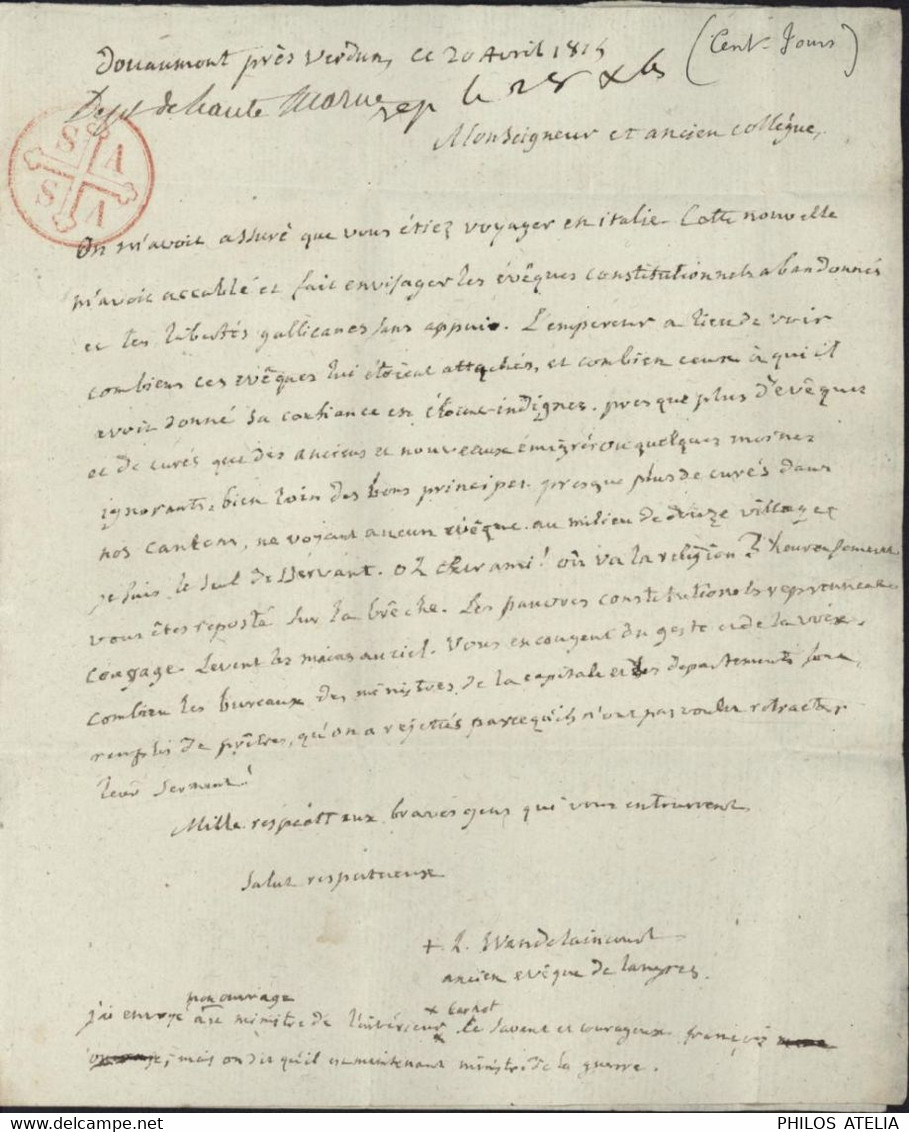 Douaumont près Verdun, ce 20 Avril 1815 (Cent-Jours)
Dept de haute Marne rep le 28
Monseigneur et ancien collégue,
S A
S A
On m'avoit assuré que vous étiez voyager en italie. Cette nouvelle
m'avoit accablé et fait envisager les évêques constitutionnels abandonnés
et les libertés gallicanes sans appui. L'empereur a lieu de voir
combien ces evêques lui étoient attachés, et combien ceux à qui il
avoit donné sa confiance en étoient indignes. presque plus d'evêques
et de curés que des anciens et nouveaux émigrés ou quelques moines
ignorants, bien loin des bons principes. presque plus de curés dans
nos cantons, ne voyant aucun evêque. au milieu de douze villages
je suis le seul desservant. oh cher ami! où va la religion? heureusement
vous êtes reposté sur la brêche. Les pauvres constitutionels reprennent
courage. Levent les mains au ciel. Vous encougent du geste et de la voix.
combien les bureaux des ministres, de la capitale et des departements sont
remplis de prêtres, qu'on a rejettés parcequ'ils n'ont pas voulu retracter
leur serment!
Mille respects aux braves gens qui vous entourrent
Salut respectueux
+ h. Wandelaincourt
ancien evêque de langres.
mon ouvrage x Carnot
j'ai envoyé à ce ministre de l'intérieur x le savant et courageux françois
mais on dit qu'il est maintenant ministre de la guerre.
PHILOS ATELIA